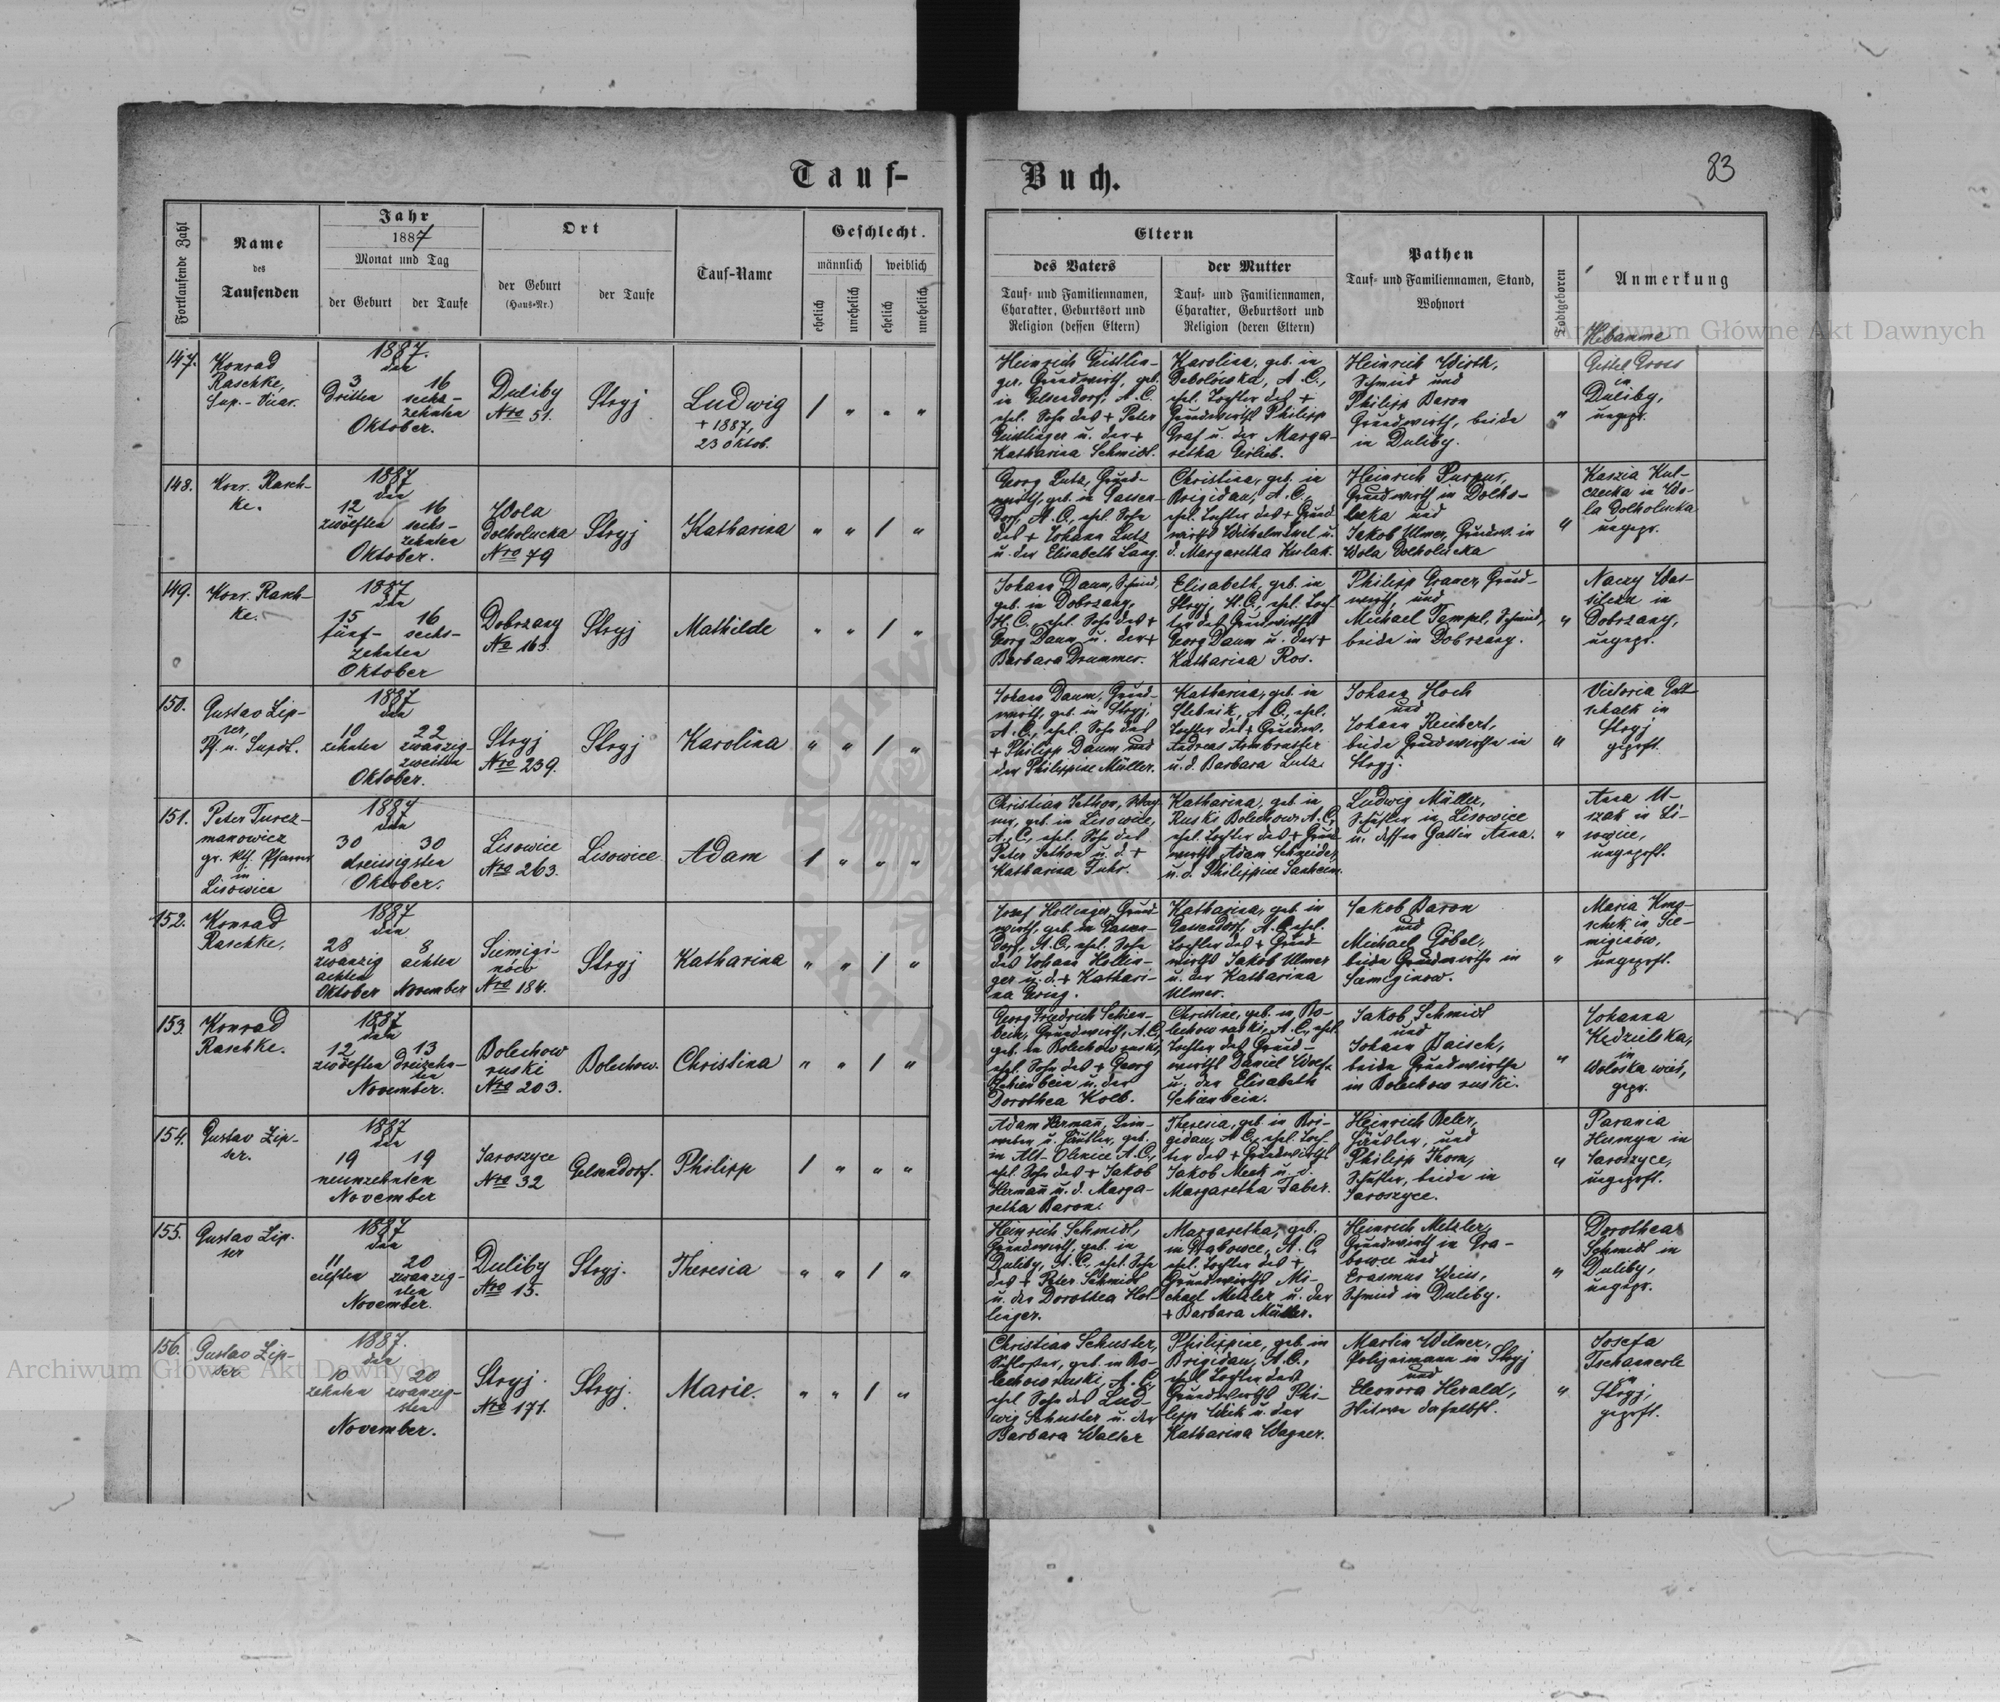 Tauf-
Buch.
83
Fortlaufende Zahl
Name
des
Taufenden
Jahr
1887
Monat und Tag
der Geburt
der Taufe
Ort
der Geburt
(Haus-Nr.)
der Taufe
Tauf-Name
Geschlecht.
männlich
weiblich
ehelich
unehelich
ehelich
unehelich
Eltern
des Vaters
Tauf- und Familiennamen,
Charakter, Geburtsort und
Religion (dessen Eltern)
der Mutter
Tauf- und Familiennamen,
Charakter, Geburtsort und
Religion (deren Eltern)
Pathen
Tauf- und Familiennamen, Stand,
Wohnort
Todtgeboren
Anmerkung
Hebamme
Archiwum Główne Akt Dawnych
147.
Konrad
Raschke,
Sup.-Vicar.
1887.
den
3 16
Dritten sechs-
zehnten
Oktober.
Duliby
Nro 51.
Stryj
Ludwig
+ 1887,
23 Oktob.
/ " " "
Heinrich
ger, Grundwirth, geb.
in Gelsendorf, A.C.
ehel. Sohn des + Peter
u. der +
Katharina Schmidt.
Karolina, geb. in
A.C.,
ehel. Tochter des +
Grundwirths Philipp
Graf u. der Marga-
retha
Heinrich Wirth,
Schmied und
Philipp Baron
Grundwirth, beide
in Duliby.
"
Gross
in
Duliby,
ungepr.
148.
Konr. Rasch-
ke.
1887
den
12 16
zwölften sechs-
zehnten
Oktober.
Wola
Dolholucka
Nro 79
Stryj
Katharina
" " / "
Georg Lutz, Grund-
wirth, geb. in Gassen-
dorf, A.C., ehel. Sohn
des + Johann Lutz
u. der Elisabeth Lang.
Christina, geb. in
Brigidau, A.C.,
ehel. Tochter des + Grund-
wirths Wilhelm u.
d. Margaretha
Heinrich Purpur,
Grundwirth in Dolho-
lucka und
Jakob Ulmer, Grundw. in
Wola Dolholucka
"
Kaszia Kul-
czecka in Wo-
la Dolholucka
ungepr.
149.
Konr. Rasch-
ke.
1887
den
15 16
fünf- sechs-
zehnten
Oktober
Dobrzany
No 163.
Stryj
Mathilde
" " / "
Johann Daum, Schmied,
geb. in Dobrzany,
H.C., ehel. Sohn des +
Georg Daum u. der +
Barbara Drummer.
Elisabeth, geb. in
Stryj, H.C., ehel. Toch-
ter des Grundwirths
Georg Daum u. der +
Katharina Ros.
Philipp Kraner, Grund-
wirth, und
Michael Tampel, Schmied,
beide in Dobrzany.
"
Naczy Was-
in
Dobrzany,
ungepr.
150.
Gustav Zip-
ser,
Pf. u. Supdt.
1887
den
10 22
zehnten zwanzig-
zweiten
Oktober.
Stryj
Nro 239.
Stryj
Karolina
" " / "
Johann Daum, Grund-
wirth, geb. in Stryj,
A.C., ehel. Sohn des
+ Philipp Daum und
der Philippine Müller.
Katharina, geb. in
Stebnik, A.C., ehel.
Tochter des + Grundw.
Andreas Armbruster
u. d. Barbara Lutz.
Johann Hoch
und
Johann Reichert,
beide Grundwirthe in
Stryj.
"
Victoria Gott-
schalk in
Stryj
geprft.
151.
Peter Turcz-
manowicz
gr. kth. Pfarrer
in
Lisowice
1887
den
30 30
dreissigsten
Oktober.
Lisowice
Nro 263.
Lisowice
Adam
1 " " "
Christian Sethon, Wag-
ner, geb. in Lisowice,
A.C., ehel. Sohn des
Peter Sethon u. d. +
Katharina Fuhr.
Katharina, geb. in
Ruski Bolechow, A.C.,
ehel. Tochter des + Grund-
wirths Adam Schneider,
u. d. Philippine Sauheim.
Ludwig Müller,
Schuster in Lisowice
u. dessen Gattin Anna.
"
Anna U-
szak in Li-
sowice,
ungeprft.
152.
Konrad
Raschke.
1887
den
28 8
zwanzig achten
achten
Oktober November
Siemigi-
nów
Nro 184.
Stryj
Katharina
" " / "
Josef Hollinger, Grund-
wirth, geb. in Gassen-
dorf, A.C., ehel. Sohn
des Johann Hollin-
ger u. d. + Kathari-
na Krieg.
Katharina, geb. in
Gassendorf, A.C., ehel.
Tochter des + Grund-
wirths Jakob Ulmer
u. der Katharina
Ulmer.
Jakob Baron
und
Michael Göbel,
beide Grundwirthe in
Siemiginow.
"
Maria
in Sie-
miginów,
ungeprft.
153.
Konrad
Raschke.
1887
den
12 13
zwölften dreizehn-
ten
November.
Bolechow
ruski
Nro 203.
Bolechow.
Christina
" " / "
Georg Friedrich Schien-
bein, Grundwirth, A.C.,
geb. in Bolechow ruski,
ehel. Sohn des + Georg
Schienbein u. der
Dorothea Kolb.
Christine, geb. in Bo-
lechow ruski, A.C., ehel.
Tochter des Grund-
wirths Daniel Wolf
u. der Elisabeth
Schienbein.
Jakob Schmidt
und
Johann Baisch,
beide Grundwirthe
in Bolechow ruski.
"
Johanna
Kedzielska,
in
Woloska wieś,
gepr.
154.
Gustav Zip-
ser.
1887
den
19 19
neunzehnten
November
Jaroszyce
Nro 32
Gelsendorf.
Philipp
1 " " "
Adam Hermañ, Lein-
weber u. Häusler, geb.
in Alt-Olenice A.C.,
ehel. Sohn des + Jakob
Hermañ u. d. Marga-
retha Baron.
Theresia, geb. in Bri-
gidau, A.C., ehel. Toch-
ter des + Grundwirths
Jakob Meck u. d.
Margaretha Faber.
Heinrich Beler,
Häusler, und
Philipp Thom,
Schuster, beide in
Jaroszyce.
"
Parania
Husmyn in
Jaroszyce,
ungeprft.
155.
Gustav Zip-
ser
1887
den
11 20
eilften zwanzig-
sten
November.
Duliby
Nro 15.
Stryj.
Theresia
" " / "
Heinrich Schmidt,
Grundwirth, geb. in
Duliby, A.C., ehel. Sohn
des + Peter Schmidt
u. der Dorothea Hol-
linger.
Margaretha, geb.
in Grabowce, A.C.
ehel. Tochter des +
Grundwirths Mi-
chael Metzler u. der
+ Barbara Müller.
Heinrich Metzler,
Grundwirth in Gra-
bowce und
Erasmus Weiss,
Schmied in Duliby.
"
Dorothea
Schmidt in
Duliby,
ungepr.
156.
Gustav Zip-
ser
1887.
den
10 20
zehnten zwanzig-
sten
November.
Stryj.
Nro 171.
Stryj.
Marie.
" " / "
Christian Schuster,
Schlosser, geb. in Bo-
lechow ruski, A.C.,
ehel. Sohn des Lud-
wig Schuster u. der
Barbara Walter
Philippine, geb. in
Brigidau, A.C.,
ehel. Tochter des
Grundwirths Phi-
lipp Weik u. der
Katharina Wagner.
Martin Wilmer,
Polizeimann in Stryj
und
Eleonora Herald,
Witwe daselbst.
"
Josefa
Tschamerle
in
Stryj,
geprft.
Archiwum Główne Akt Dawnych